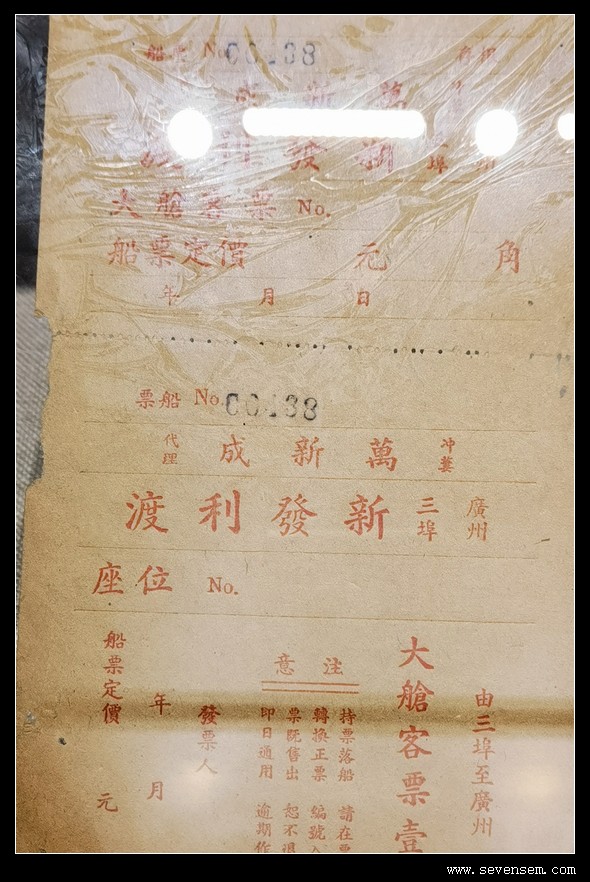 船票 No. 00138
大艙客票 No.
船票定價 元 角
年 月 日
船票 No. 00138
冲蔞 萬新成 代理
廣州 三埠 新發利渡
座位 No.
由三埠至廣州
大艙客票壹
注意
持票落船 請在票
轉換正票 編號
票既售出 恕不退
即日通用 逾期作
發票人
年 月
船票定價 元
www.sevensem.com